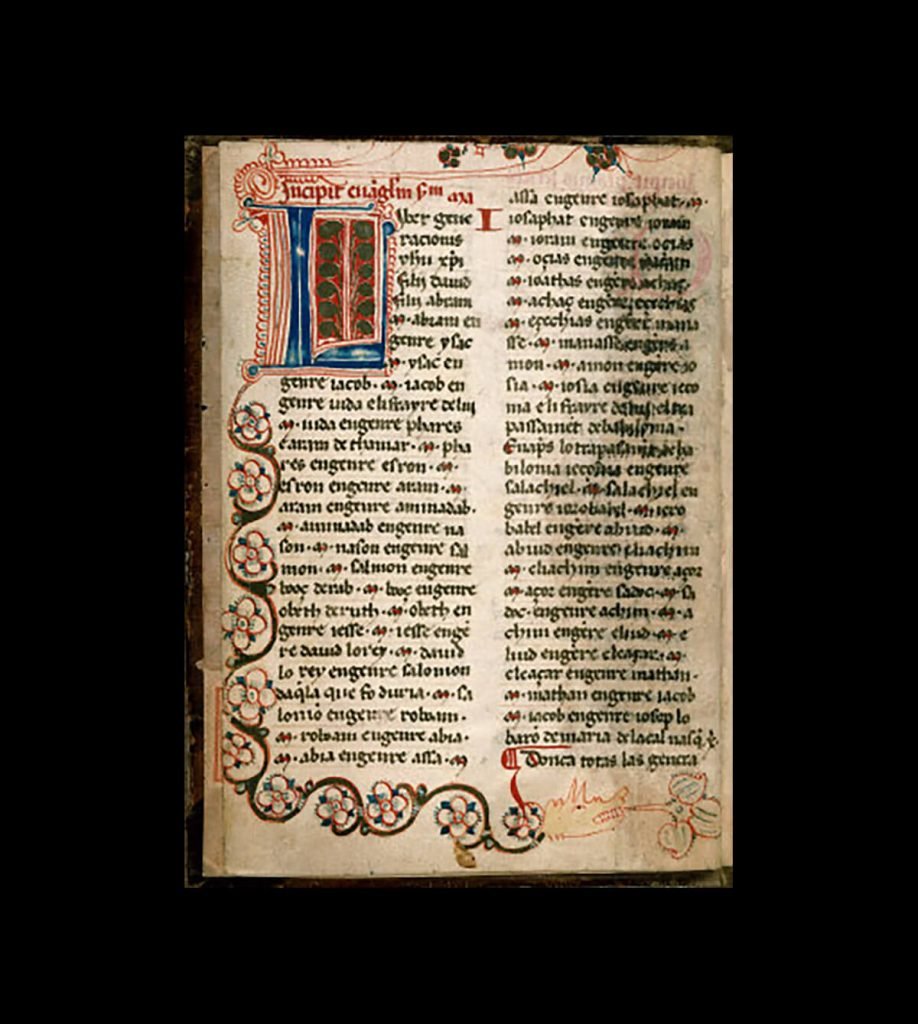 Incipit
Liber gene
racionis
yhu xpi
filii david
filii abram
abram en
genre ysac
ysac en
genre iacob · iacob en
genre iuda els frayre de luy
iuda engenre phares
e aram de thamar · pha
res engenre esron ·
esron engenre aram ·
aram engenre aminadab ·
aminadab engenre na
son · nason engenre sal
mon · salmon engenre
booç de rab · booç engenre
obeth de ruth · obeth en
genre iesse · iesse enge
re david lo rey · david
lo rey engenre salomon
que fo duria · sa
engenre roboam ·
roboam engenre abia ·
abia engenre assa ·
I
assa engenre iosaphat ·
iosaphat engenre ioram
ioram engenre ocias
ocias engenre
ioathas engenre achaç
achaç engenre ezechias
ezechias engenre mana
sse · manasse engenre a
mon · amon engenre io
sia · iosia engenre ieco
nia els frayre
passament de babilonia ·
lo trapassament de ba
bilonia ieconia engenre
salachiel · salachiel en
genre zorobabel · zoro
babel engenre abiud ·
abiud engenre eliachim
eliachim engenre açor
açor engenre sadoc · sa
doc · engenre achim · a
chim engenre eliud · e
liud engenre eleaçar ·
eleaçar engenre mathan ·
mathan engenre iacob
iacob engenre iosep lo
baro de maria de la cal
Donca totas las genera